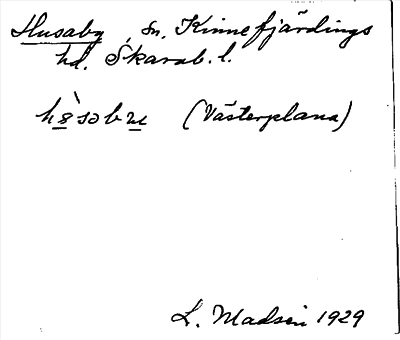 Husaby, sn. Kinnefjärdings
hd. Skarab. l.
(Västerplana)
L. Madsén 1929